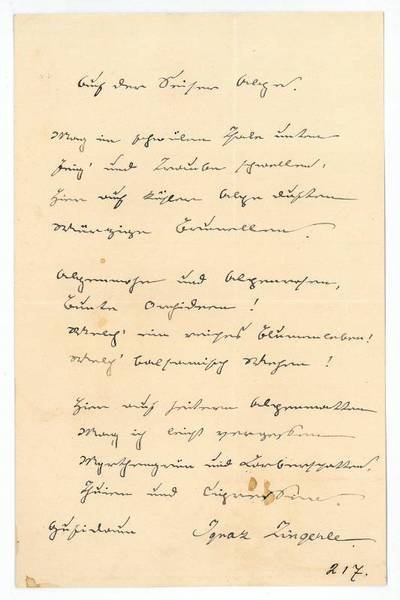 Auf der Seiser Alpe.
Mag im schwülen Thale unten
Feig' und Traube schwellen,
Hier auf kühler Alpe duften
Würzige Brunellen.
Alpenmohn und Alpenrosen,
Bunte Orchideen!
Welch' ein reiches Blumenleben!
Welch' balsamisch Wehen!
Hier auf heitern Alpenmatten
Mag ich leicht vergessen
Myrthengrün und Lorberschatten,
und
Gufidaun Ignaz Zingerle.
217.